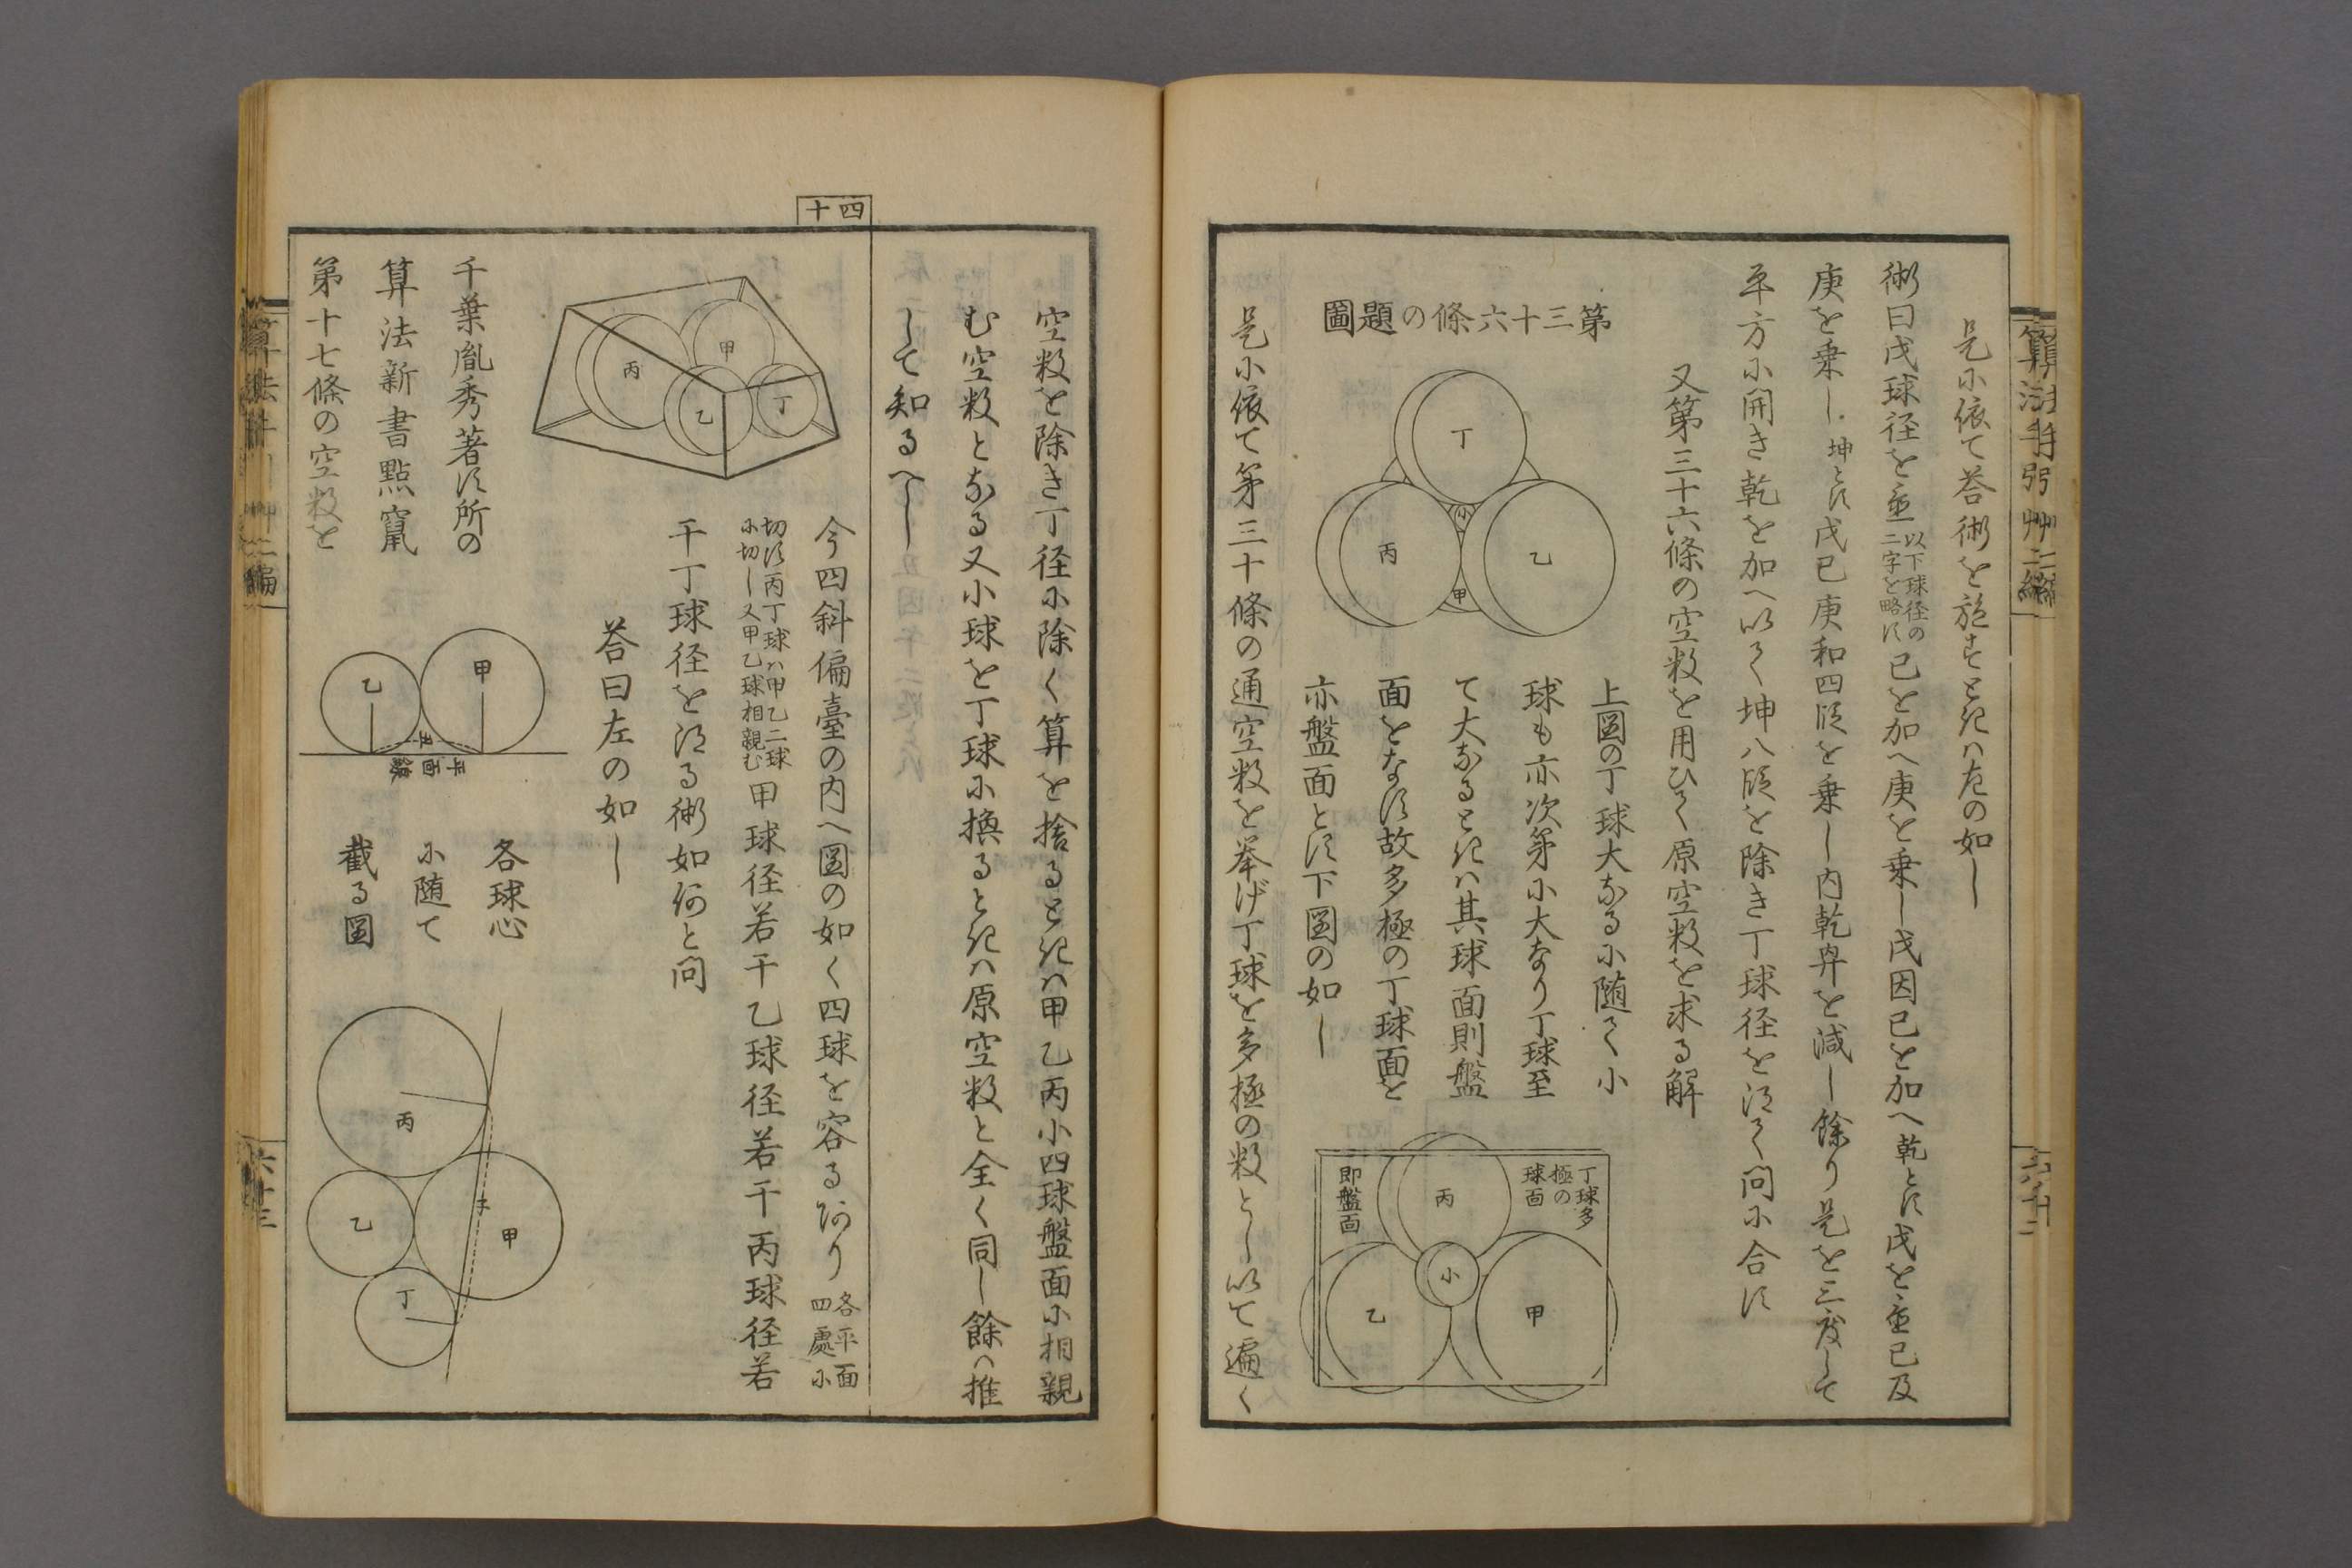 是ニ依て答術を施すときハ左の如し
術曰戊球径を並以下球径の
二字を略す己を加へ庚を乗し戊因己を加へ乾とす戊を並己及
庚を乗し坤とす戊己庚和四段を乗し内乾冪を減し餘り是を三度して
平方ニ開き乾を加へ以て坤八段を除き丁球径を得て問ニ合す
又第三十六條の空数を用ひて原空数を求る解
第三十六條の題圖
丁
小
丙
乙
甲
上図の丁球大なるニ随て小
球も亦次第ニ大なり丁球至
て大なるときハ其球面則盤
面をなす故多極の丁球面を
亦盤面とす下図の如し
丁球多
極の
球面
即盤面
丙
小
乙
甲
是ニ依て第三十條の通空数を挙げ丁球を多極の数とし以て遍く
空数を除き丁径ニ除く算を捨るときハ甲乙丙小四球盤面ニ相親
む空数となる又小球を丁球ニ換るときハ原空数と全く同し餘ハ推
して知るへし
四十
今四斜偏臺の内へ図の如く四球を容るあり各平面
四處ニ
切す丙丁球ハ甲乙二球
ニ切し又甲乙球相親む甲球径若干乙球径若干丙球径若
干丁球径を得る術如何と問
答曰左の如し
甲
丙
乙
丁
千葉胤秀著す所の
算法新書點竄
第十七條の空数を
甲
乙
子
平面
各球心
ニ随て
截る図
丙
乙
子
甲
丁